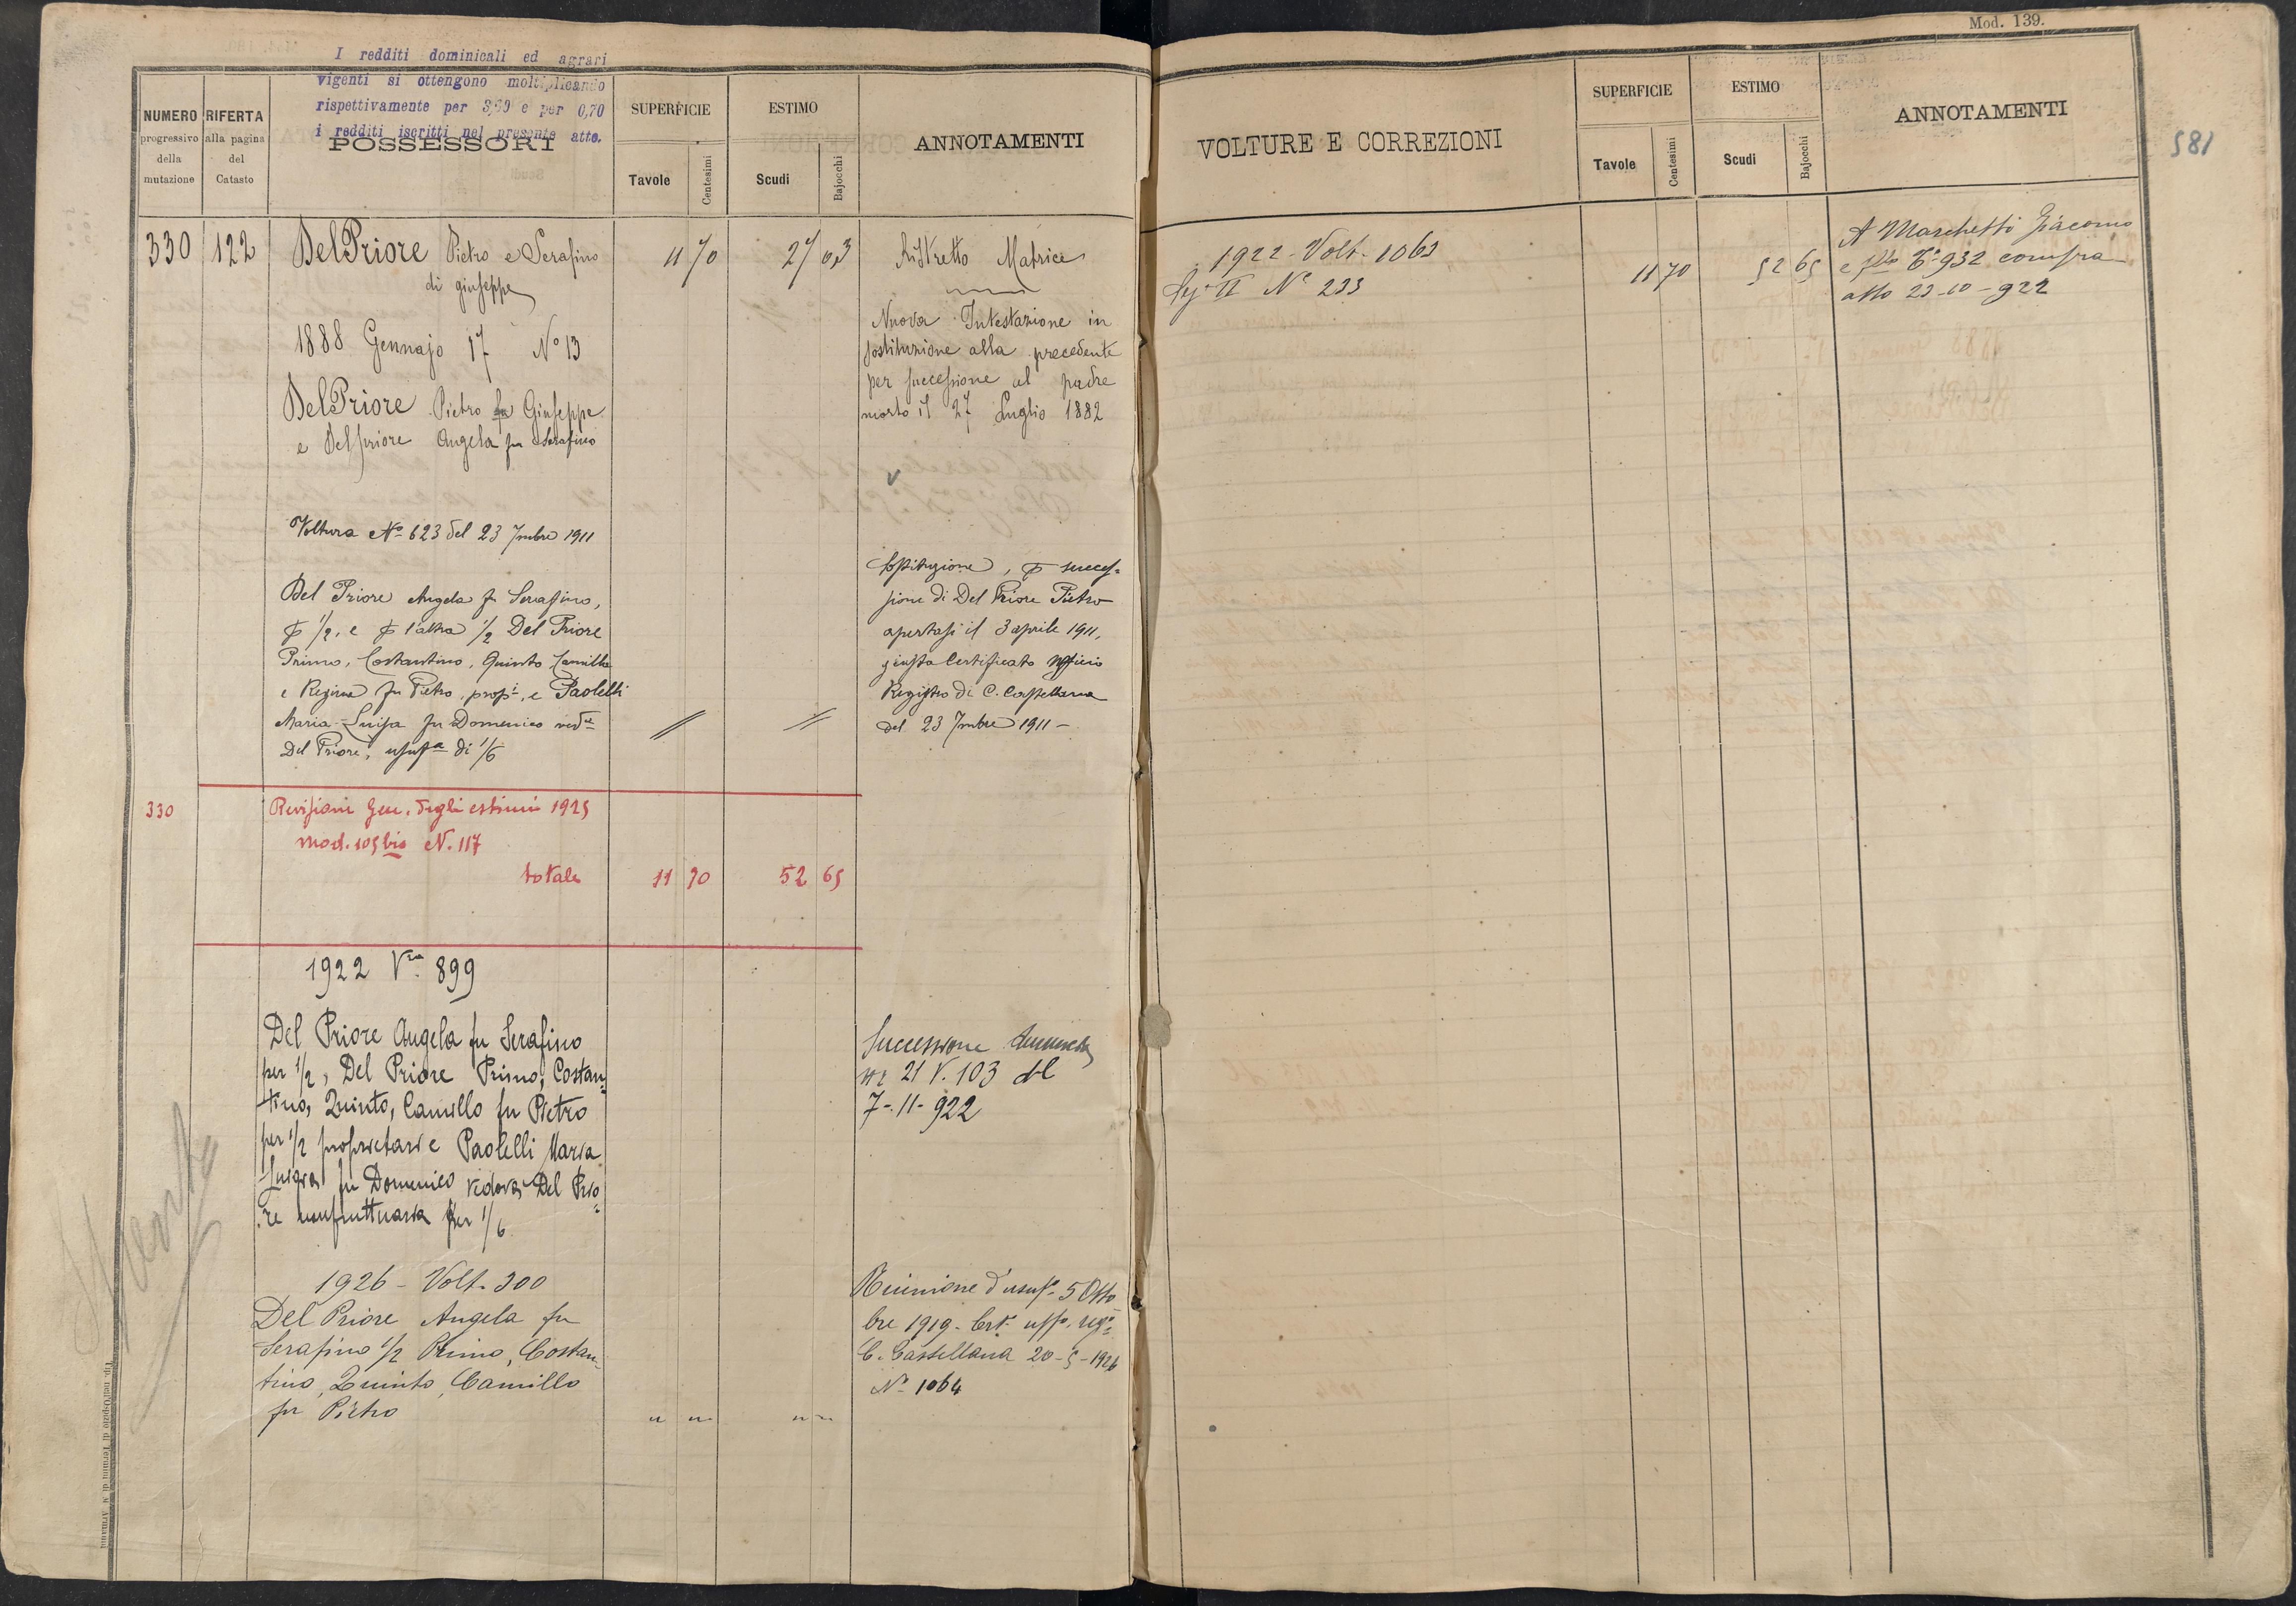 Mod. 139.
I redditi dominicali ed agrari
vigenti si ottengono moltiplicando
rispettivamente per e per 0,70
i redditi iscritti nel presente atto.
NUMERO
progressivo
della
mutazione
RIFERTA
alla pagina
del
Catasto
POSSESSORI
SUPERFICIE
Tavole
Centesimi
ESTIMO
Scudi
Bajocchi
ANNOTAMENTI
330 122 DelPriore Pietro e Serafino 11 70 27 03 Ristretto Matrice
di giuseppe
1888 Gennajo 17 Nº 13
DelPriore Pietro fu Giuseppe
e Delpriore Angela fu Serafino
Nuova Intestazione in
sostituzione alla precedente
per successione al padre
morto il 27 Luglio 1882
Voltura Nº 623 del 23 7mbre 1911
Del Priore Angela fu Serafino,
p 1/2, e p l'altra 1/2 Del Priore
Primo, Costantino, Quinto, Camillo
e Regina fu Pietro, propi, e Paolelli
Maria-Luisa fu Domenico veda
Del Priore, usufa di 1/6 // //
Sostituzione, p succes=
sione di Del Priore Pietro
apertasi il 3 aprile 1911,
giusta Certificato Ufficio
Registro di C. Castellana
del 23 7mbre 1911 -
330 Revisioni Gen. degli estimi 1925
mod. 105 bis N. 117
totale 11 70 52 65
1922 Vra 899
Del Priore Angela fu Serafino
per 1/2, Del Priore Primo, Costan=
tino, Quinto, Camillo fu Pietro
per 1/2 proprietari e Paolelli Maria
Luigia fu Domenico vedova Del Prio=
re usufruttuaria per 1/6
Successione
Nº 21 V. 103 del
7-11-922
1926 - Volt. 300
Del Priore Angela fu
Serafino 1/2 Primo, Costan=
tino, Quinto, Camillo
fu Pietro " " " "
Riunione d'usufo 5 Otto
bre 1919 - Cert. uffo rego
C. Castellana 20-5-1926
Nº 1064
Tip. nell'Ospizio di Termini di N. Armanni
VOLTURE E CORREZIONI
SUPERFICIE
Tavole
Centesimi
ESTIMO
Scudi
Bajocchi
ANNOTAMENTI
581
1922 - Volt. 1063
II Nº 233 11 70 52 65
A Marchetti Giacomo
e 932 compra
atto 23-10-922